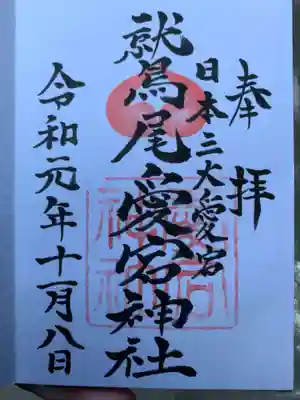 奉拝
日本三大愛宕
鷲尾愛宕神社
令和元年十一月八日